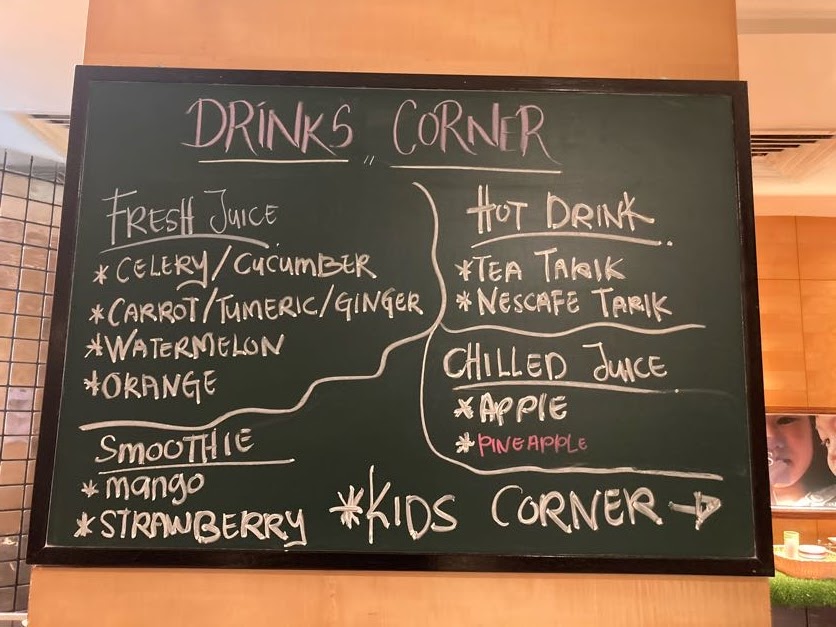 DRINKS CORNER
FRESH JUICE
*CELERY/CUCUMBER
*CARROT/TUMERIC/GINGER
*WATERMELON
*ORANGE
SMOOTHIE
*mango
*STRAWBERRY
HOT DRINK
*TEA TARIK
*NESCAFE TARIK
CHILLED JUICE
*APPLE
*PINEAPPLE
*KIDS CORNER →